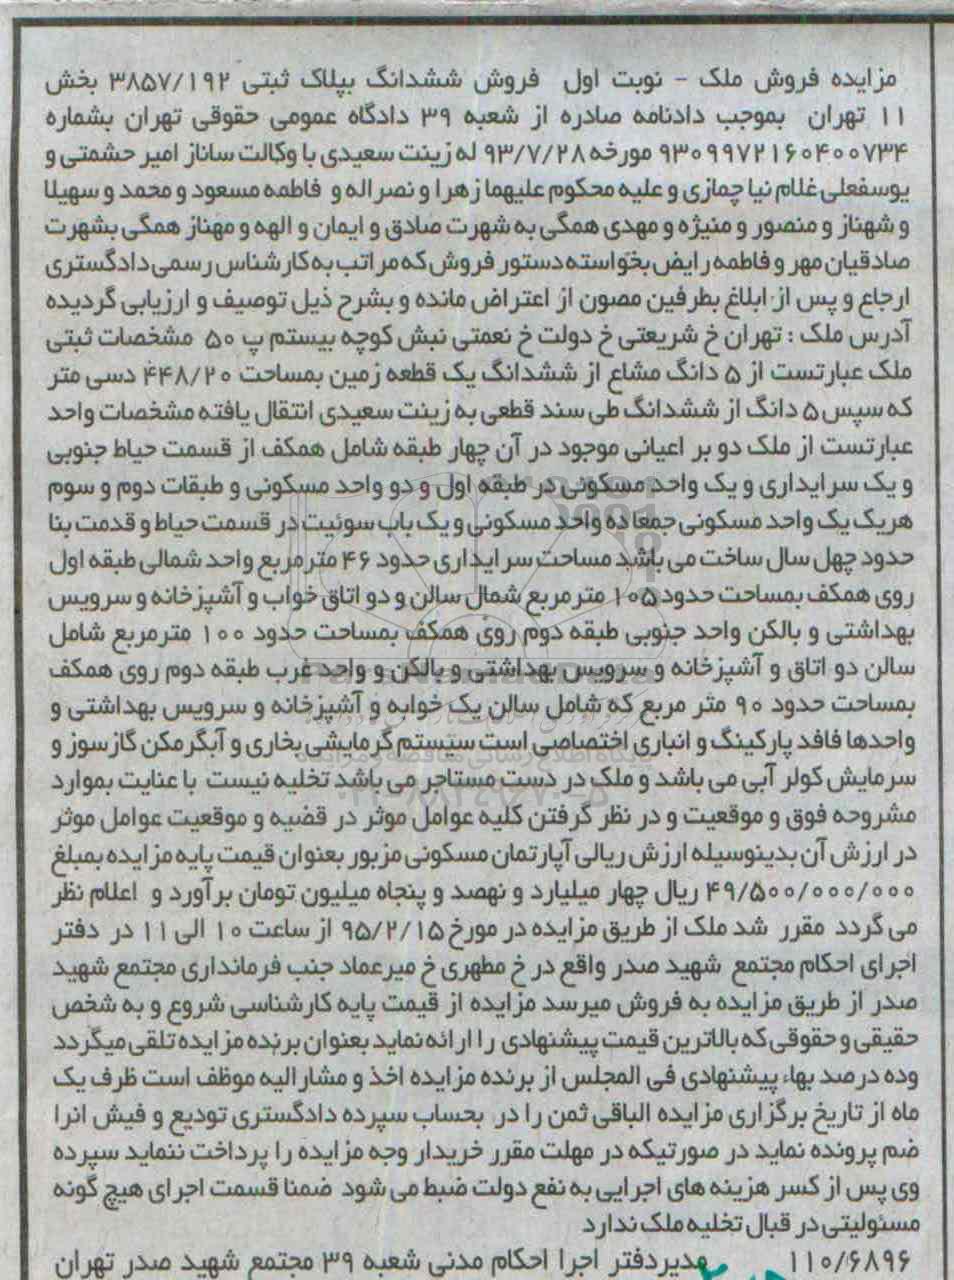 مزایده فروش ملک - نوبت اول فروش ششدانگ بپلاک ثبتی ۳۸۵۷/۱۹۲ بخش
۱۱ تهران بموجب دادنامه صادره از شعبه ۳۹ دادگاه عمومی حقوقی تهران بشماره
۹۳۰۹۹۷۲۱۶۰۴۰۰۷۳۴ مورخه ۹۳/۷/۲۸ له زینت سعیدی با وکالت ساناز امیر حشمتی و
یوسفعلی غلام نیا چمازی و علیه محکوم علیهما زهرا و نصراله و فاطمه مسعود و محمد و سهیلا
و شهناز و منصور و منیژه و مهدی همگی به شهرت صادق و ایمان و الهه و مهناز همگی بشهرت
صادقیان مهر و فاطمه رایض بخواسته دستور فروش که مراتب به کارشناس رسمی دادگستری
ارجاع و پس از ابلاغ بطرفین مصون از اعتراض مانده و بشرح ذیل توصیف و ارزیابی گردیده
آدرس ملک : تهران خ شریعتی خ دولت خ نعمتی نبش کوچه بیستم پ ۵۰ مشخصات ثبتی
ملک عبارتست از ۵ دانگ مشاع از ششدانگ یک قطعه زمین بمساحت ۴۴۸/۲۰ دسی متر
که سپس ۵ دانگ از ششدانگ طی سند قطعی به زینت سعیدی انتقال یافته مشخصات واحد
عبارتست از ملک دو بر اعیانی موجود در آن چهار طبقه شامل همکف از قسمت حیاط جنوبی
و یک سرایداری و یک واحد مسکونی در طبقه اول و دو واحد مسکونی و طبقات دوم و سوم
هریک یک واحد مسکونی جمعا ده واحد مسکونی و یک باب سوئیت در قسمت حیاط و قدمت بنا
حدود چهل سال ساخت می باشد مساحت سرایداری حدود ۴۶ مترمربع واحد شمالی طبقه اول
روی همکف بمساحت حدود ۱۰۵ مترمربع شمال سالن و دو اتاق خواب و آشپزخانه و سرویس
بهداشتی و بالکن واحد جنوبی طبقه دوم روی همکف بمساحت حدود ۱۰۰ مترمربع شامل
سالن دو اتاق و آشپزخانه و سرویس بهداشتی و بالکن و واحد غرب طبقه دوم روی همکف
بمساحت حدود ۹۰ متر مربع که شامل سالن یک خوابه و آشپزخانه و سرویس بهداشتی و
واحدها فاقد پارکینگ و انباری اختصاصی است سیستم گرمایشی بخاری و آبگرمکن گازسوز و
سرمایش کولر آبی می باشد و ملک در دست مستاجر می باشد تخلیه نیست با عنایت بموارد
مشروحه فوق و موقعیت و در نظر گرفتن کلیه عوامل موثر در قضیه و موقعیت عوامل موثر
در ارزش آن بدینوسیله ارزش ریالی آپارتمان مسکونی مزبور بعنوان قیمت پایه مزایده بمبلغ
۴۹/۵۰۰/۰۰۰/۰۰۰ ریال چهار میلیارد و نهصد و پنجاه میلیون تومان برآورد و اعلام نظر
می گردد مقرر شد ملک از طریق مزایده در مورخ ۹۵/۲/۱۵ از ساعت ۱۰ الی ۱۱ در دفتر
اجرای احکام مجتمع شهید صدر واقع در خ مطهری خ میرعماد جنب فرمانداری مجتمع شهید
صدر از طریق مزایده به فروش میرسد مزایده از قیمت پایه کارشناسی شروع و به شخص
حقیقی و حقوقی که بالاترین قیمت پیشنهادی را ارائه نماید بعنوان برنده مزایده تلقی میگردد
وده درصد بهاء پیشنهادی فی المجلس از برنده مزایده اخذ و مشارالیه موظف است ظرف یک
ماه از تاریخ برگزاری مزایده الباقی ثمن را در بحساب سپرده دادگستری تودیع و فیش انرا
ضم پرونده نماید در صورتیکه در مهلت مقرر خریدار وجه مزایده را پرداخت ننماید سپرده
وی پس از کسر هزینه های اجرایی به نفع دولت ضبط می شود ضمنا قسمت اجرای هیچ گونه
مسئولیتی در قبال تخلیه ملک ندارد
۱۱۰/۶۸۹۶ مدیردفتر اجرا احکام مدنی شعبه ۳۹ مجتمع شهید صدر تهران